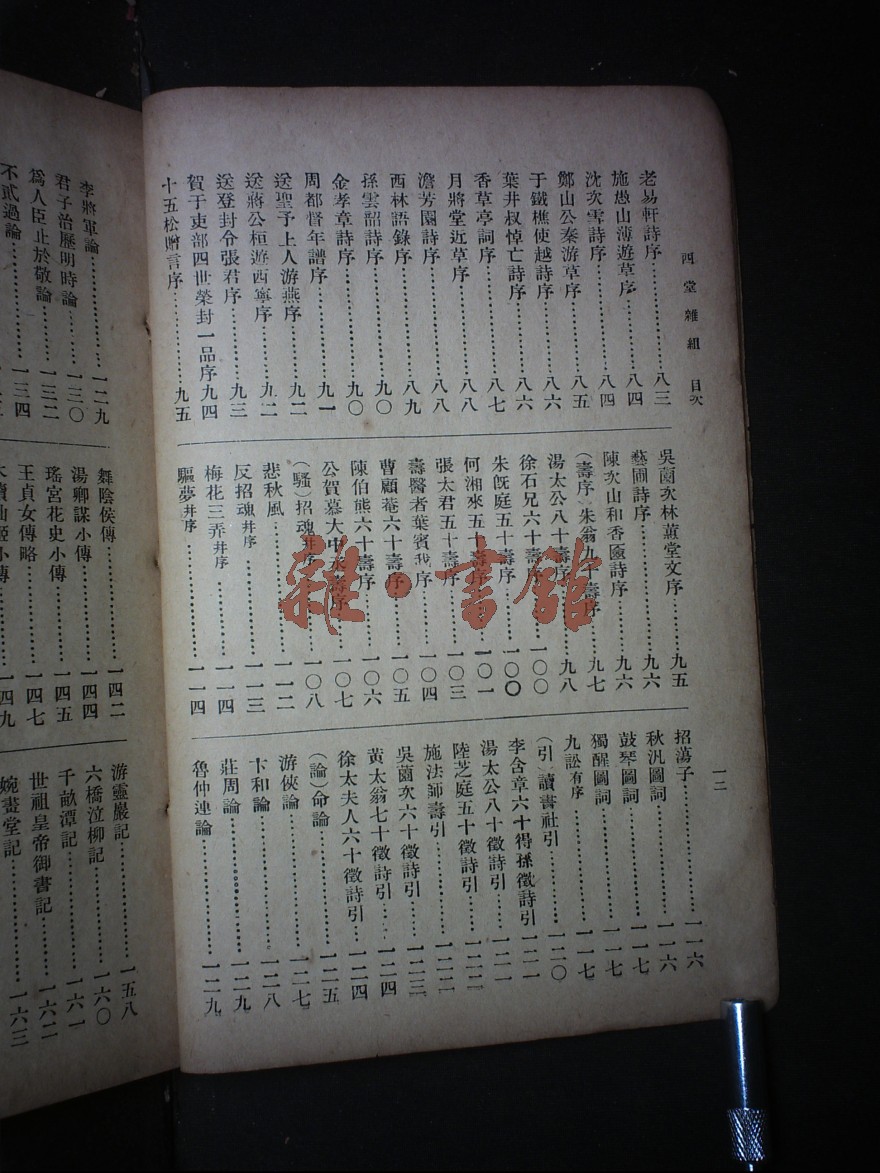 西堂雜組 目次
一二
老易軒詩序……八三
施愚山薄遊草序……八四
沈次雪詩序……八四
鄭山公秦游草序……八五
于鐵樵使越詩序……八六
葉井叔悼亡詩序……八六
香草亭詞序……八七
月將堂近草序……八八
澹芳園詩序……八八
西林語錄序……八九
孫雲韶詩序……九〇
金孝章詩序……九〇
周都督年譜序……九一
送聖予上人游燕序……九二
送蔣公桓遊西寧序……九二
送登封令張君序……九三
賀于吏部四世榮封一品序……九四
十五松贈言序……九五
吳薗次林蕙堂文序……九五
藝圃詩序……九六
陳次山和香匳詩序……九六
(壽序)朱翁九十壽序……九七
湯太公八十壽序……九八
徐石兄六十壽序……一〇〇
朱旣庭五十壽序……一〇〇
何湘來五十壽序……一〇一
張太君五十壽序……一〇三
壽醫者葉賓我序……一〇四
曹顧菴六十壽序……一〇五
陳伯熊六十壽序……一〇六
公賀慕大中丞壽序……一〇七
(騷)招魂并序……一〇八
悲秋風……一一二
反招魂并序……一一三
梅花三弄并序……一一四
驅夢并序……一一四
招蕩子……一一六
秋汎圖詞……一一六
鼓琴圖詞……一一七
獨醒圖詞……一一七
九訟有序……一一七
(引)讀書社引……一二〇
李含章六十得孫徵詩引……一二一
湯太公八十徵詩引……一二一
陸芝庭五十徵詩引……一二二
施法師壽引……一二二
吳薗次六十徵詩引……一二三
黃太翁七十徵詩引……一二四
徐太夫人六十徵詩引……一二四
(論)命論……一二五
游俠論……一二七
卞和論……一二八
莊周論……一二九
魯仲連論……一二九
李將軍論……一二九
君子治歷明時論……一三〇
爲人臣止於敬論……一三二
不貳過論……一三四
舞陰侯傳……一四二
湯卿謀小傳……一四四
瑤宮花史小傳……一四五
王貞女傳略……一四七
仙姬小傳……一四九
游靈巖記……一五八
六橋泣柳記……一六〇
千畝潭記……一六一
世祖皇帝御書記……一六二
婉畫堂記……一六三
雜·書館